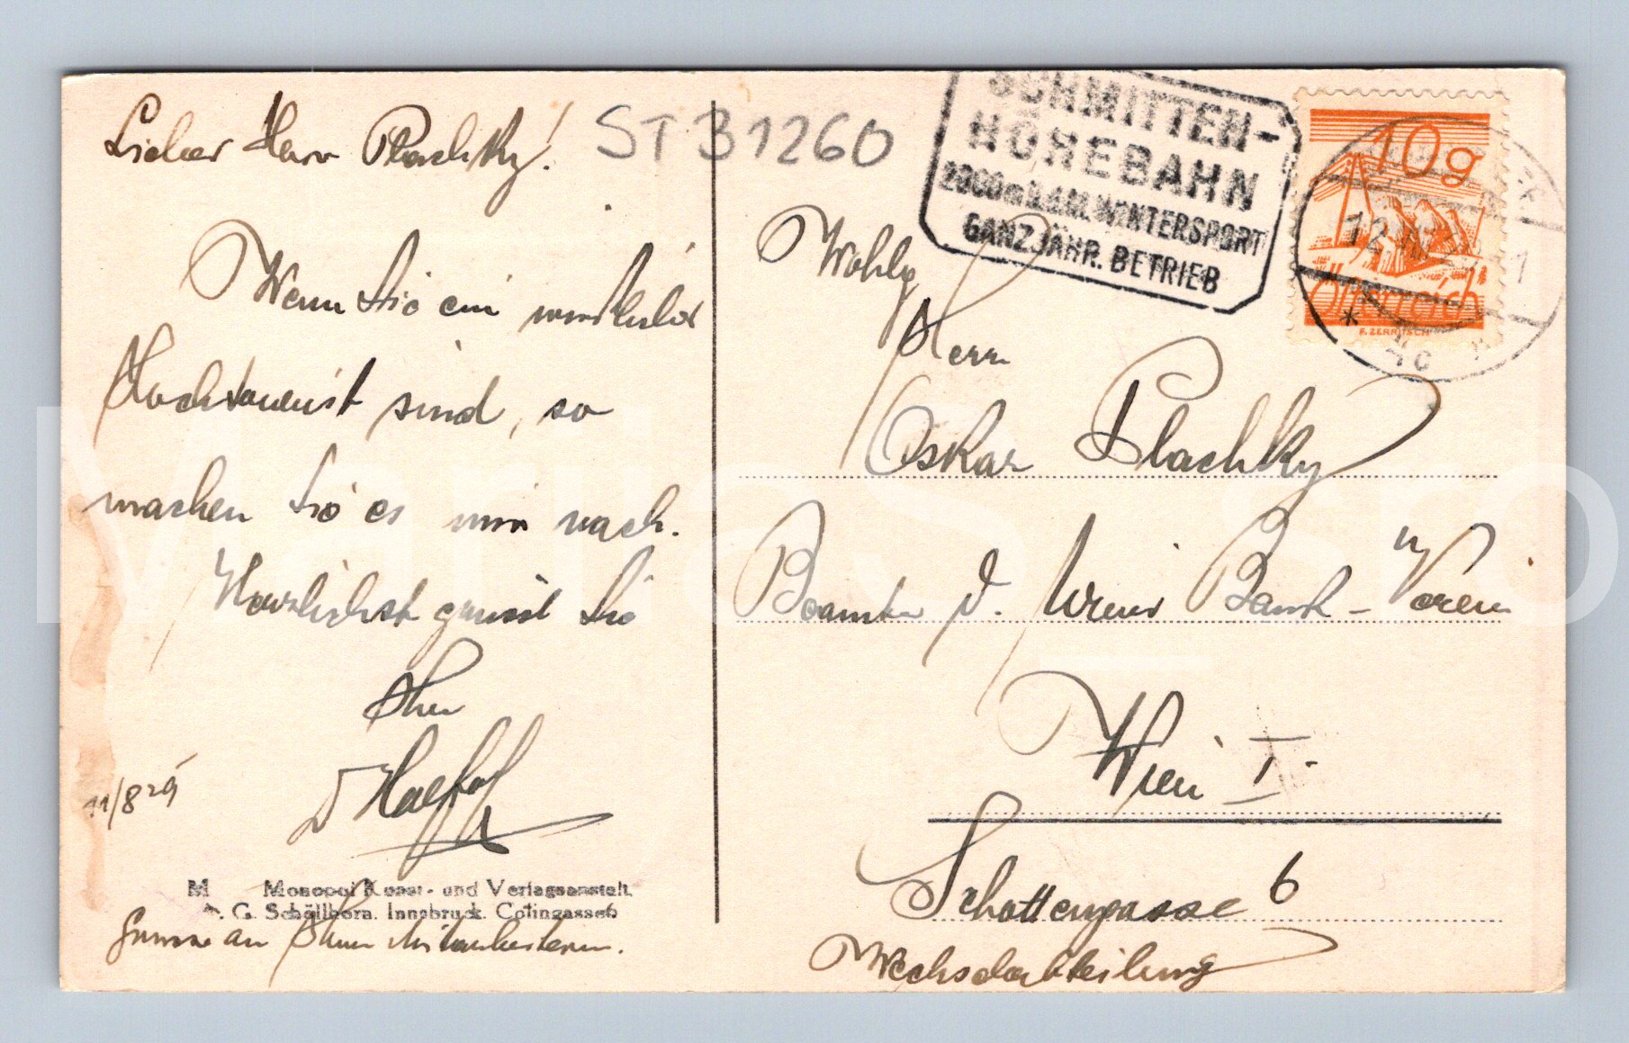 Lieber Herr Plachky!
ST B 1260
Wenn Sie ein wirklicher
Hochtourist sind, so
machen Sie es mir nach.
Herzlichst grüsst Sie
Ihr
11/8 29
M Monopol Kunst- und Verlagsanstalt
G. Schöllhorn, Innsbruck, Colingasse 6
Grüsse an Ihre Mitarbeiterin.
SCHMITTEN-
HÖHEBAHN
2000m ü.d.M. WINTERSPORT
GANZJÄHR. BETRIEB
10g
12
1
Österreich
Wohlg
Herrn
Oskar Plachky
Beamter d. Wiener Bank-Verein
Wien I.
Schottengasse 6
Wechselabteilung